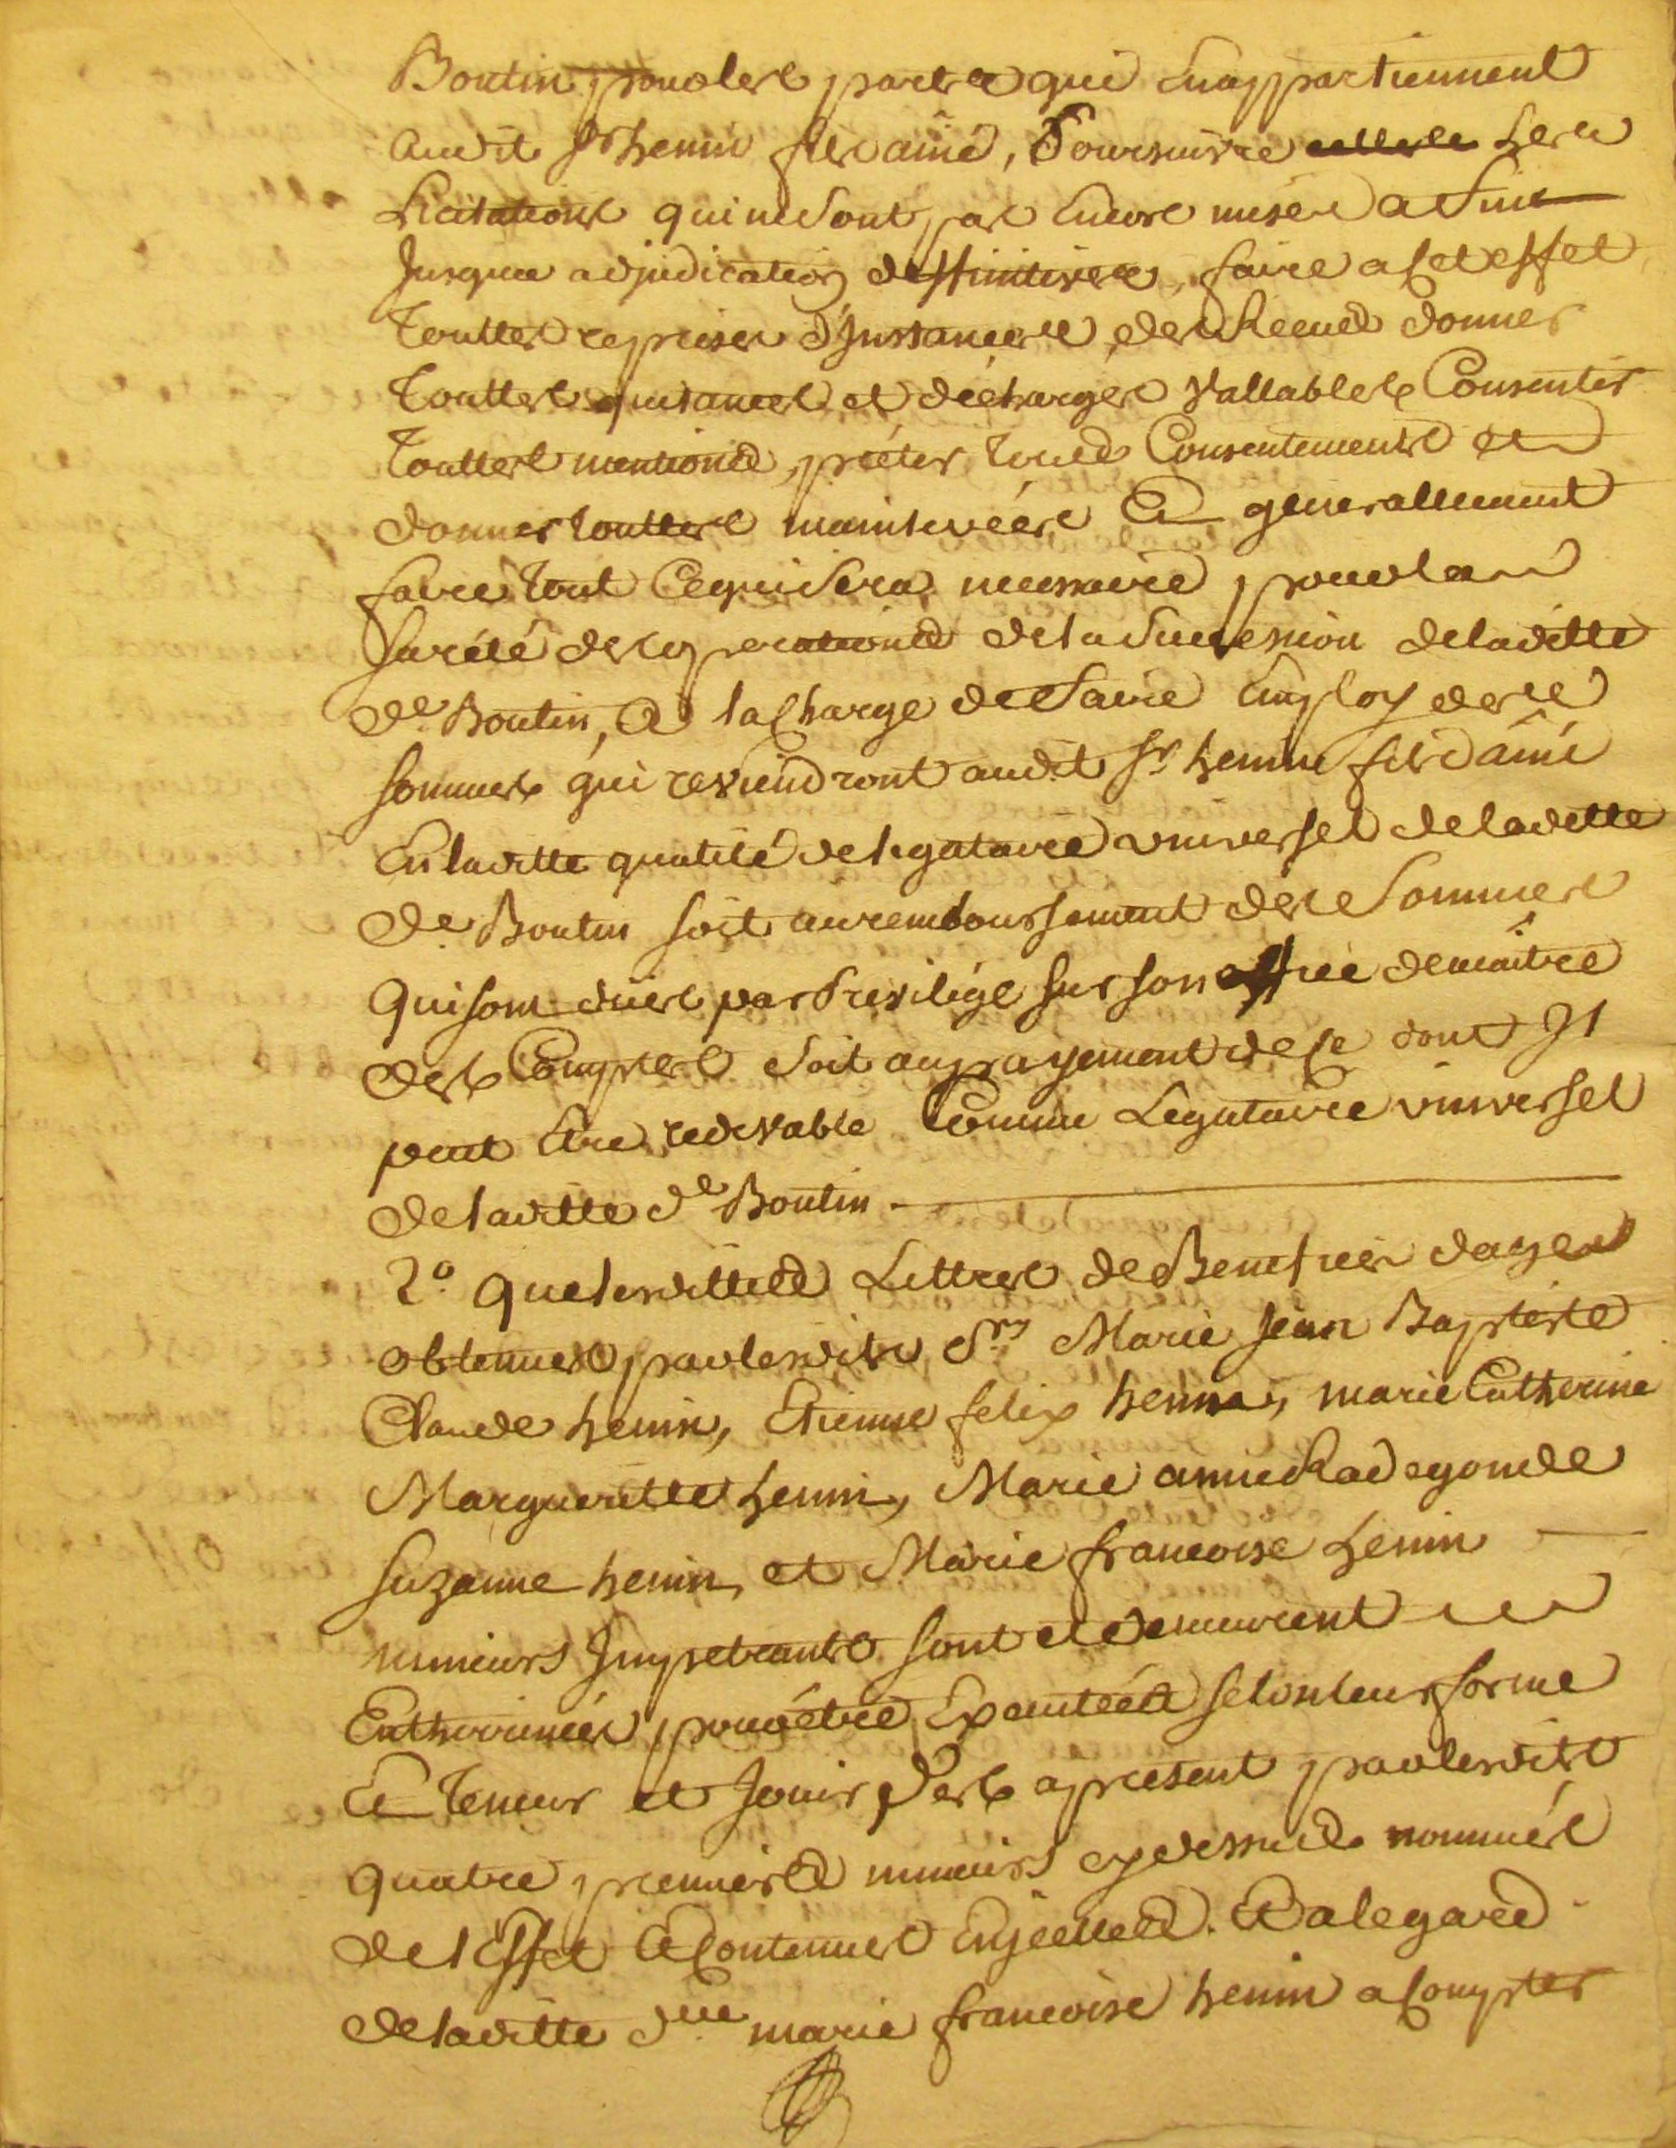 Boutin pour les parts qui En appartiennent
audit Sr henin fils ainé, Poursuivre les
Licitations qui ne Sont pas Encore mises a fin
Jusqua adjudication deffinitive, faire a Cet effet
Touttes reprises d'Instances, des Receus donner
Touttes quitances et décharges Vallables Consentir
Touttes mentions, préter Tous Consentements et
donner touttes mainlevées Et generallement
faire Tout Ce qui Sera necessaire pour la
Sureté des operations de la Succession de laditte
De Boutin, a la Charge de Faire Employ des
sommes qui reviendront audit Sr henin fils ainé
En laditte qualité de legataire universel de laditte
De Boutin soit au remboursement des Sommes
qui sont dües par Privilége sur son office de maître
des Comptes Soit au payement de Ce dont Il
peut Etre redevable Comme Legataire universel
de laditte De Boutin
2° que lesdittes Lettres de Benefice dage
obtenues par lesdits Srs Marie Jean Baptiste
Claude henin, Etienne felix henin, marie Catherine
Margueritte henin, Marie anne Radegonde
Suzanne henin, et Marie francoise henin
mineurs Impetrants sont et demeurent
Entherinées pour étre Executées selon leur forme
Et Teneur et Jouir Des apresent par lesdits
quatre premiers mineurs cy dessus nommés
de l'Effet Et Contenu En jcelles. Et a legard
de laditte Dlle marie francoise henin a Compter